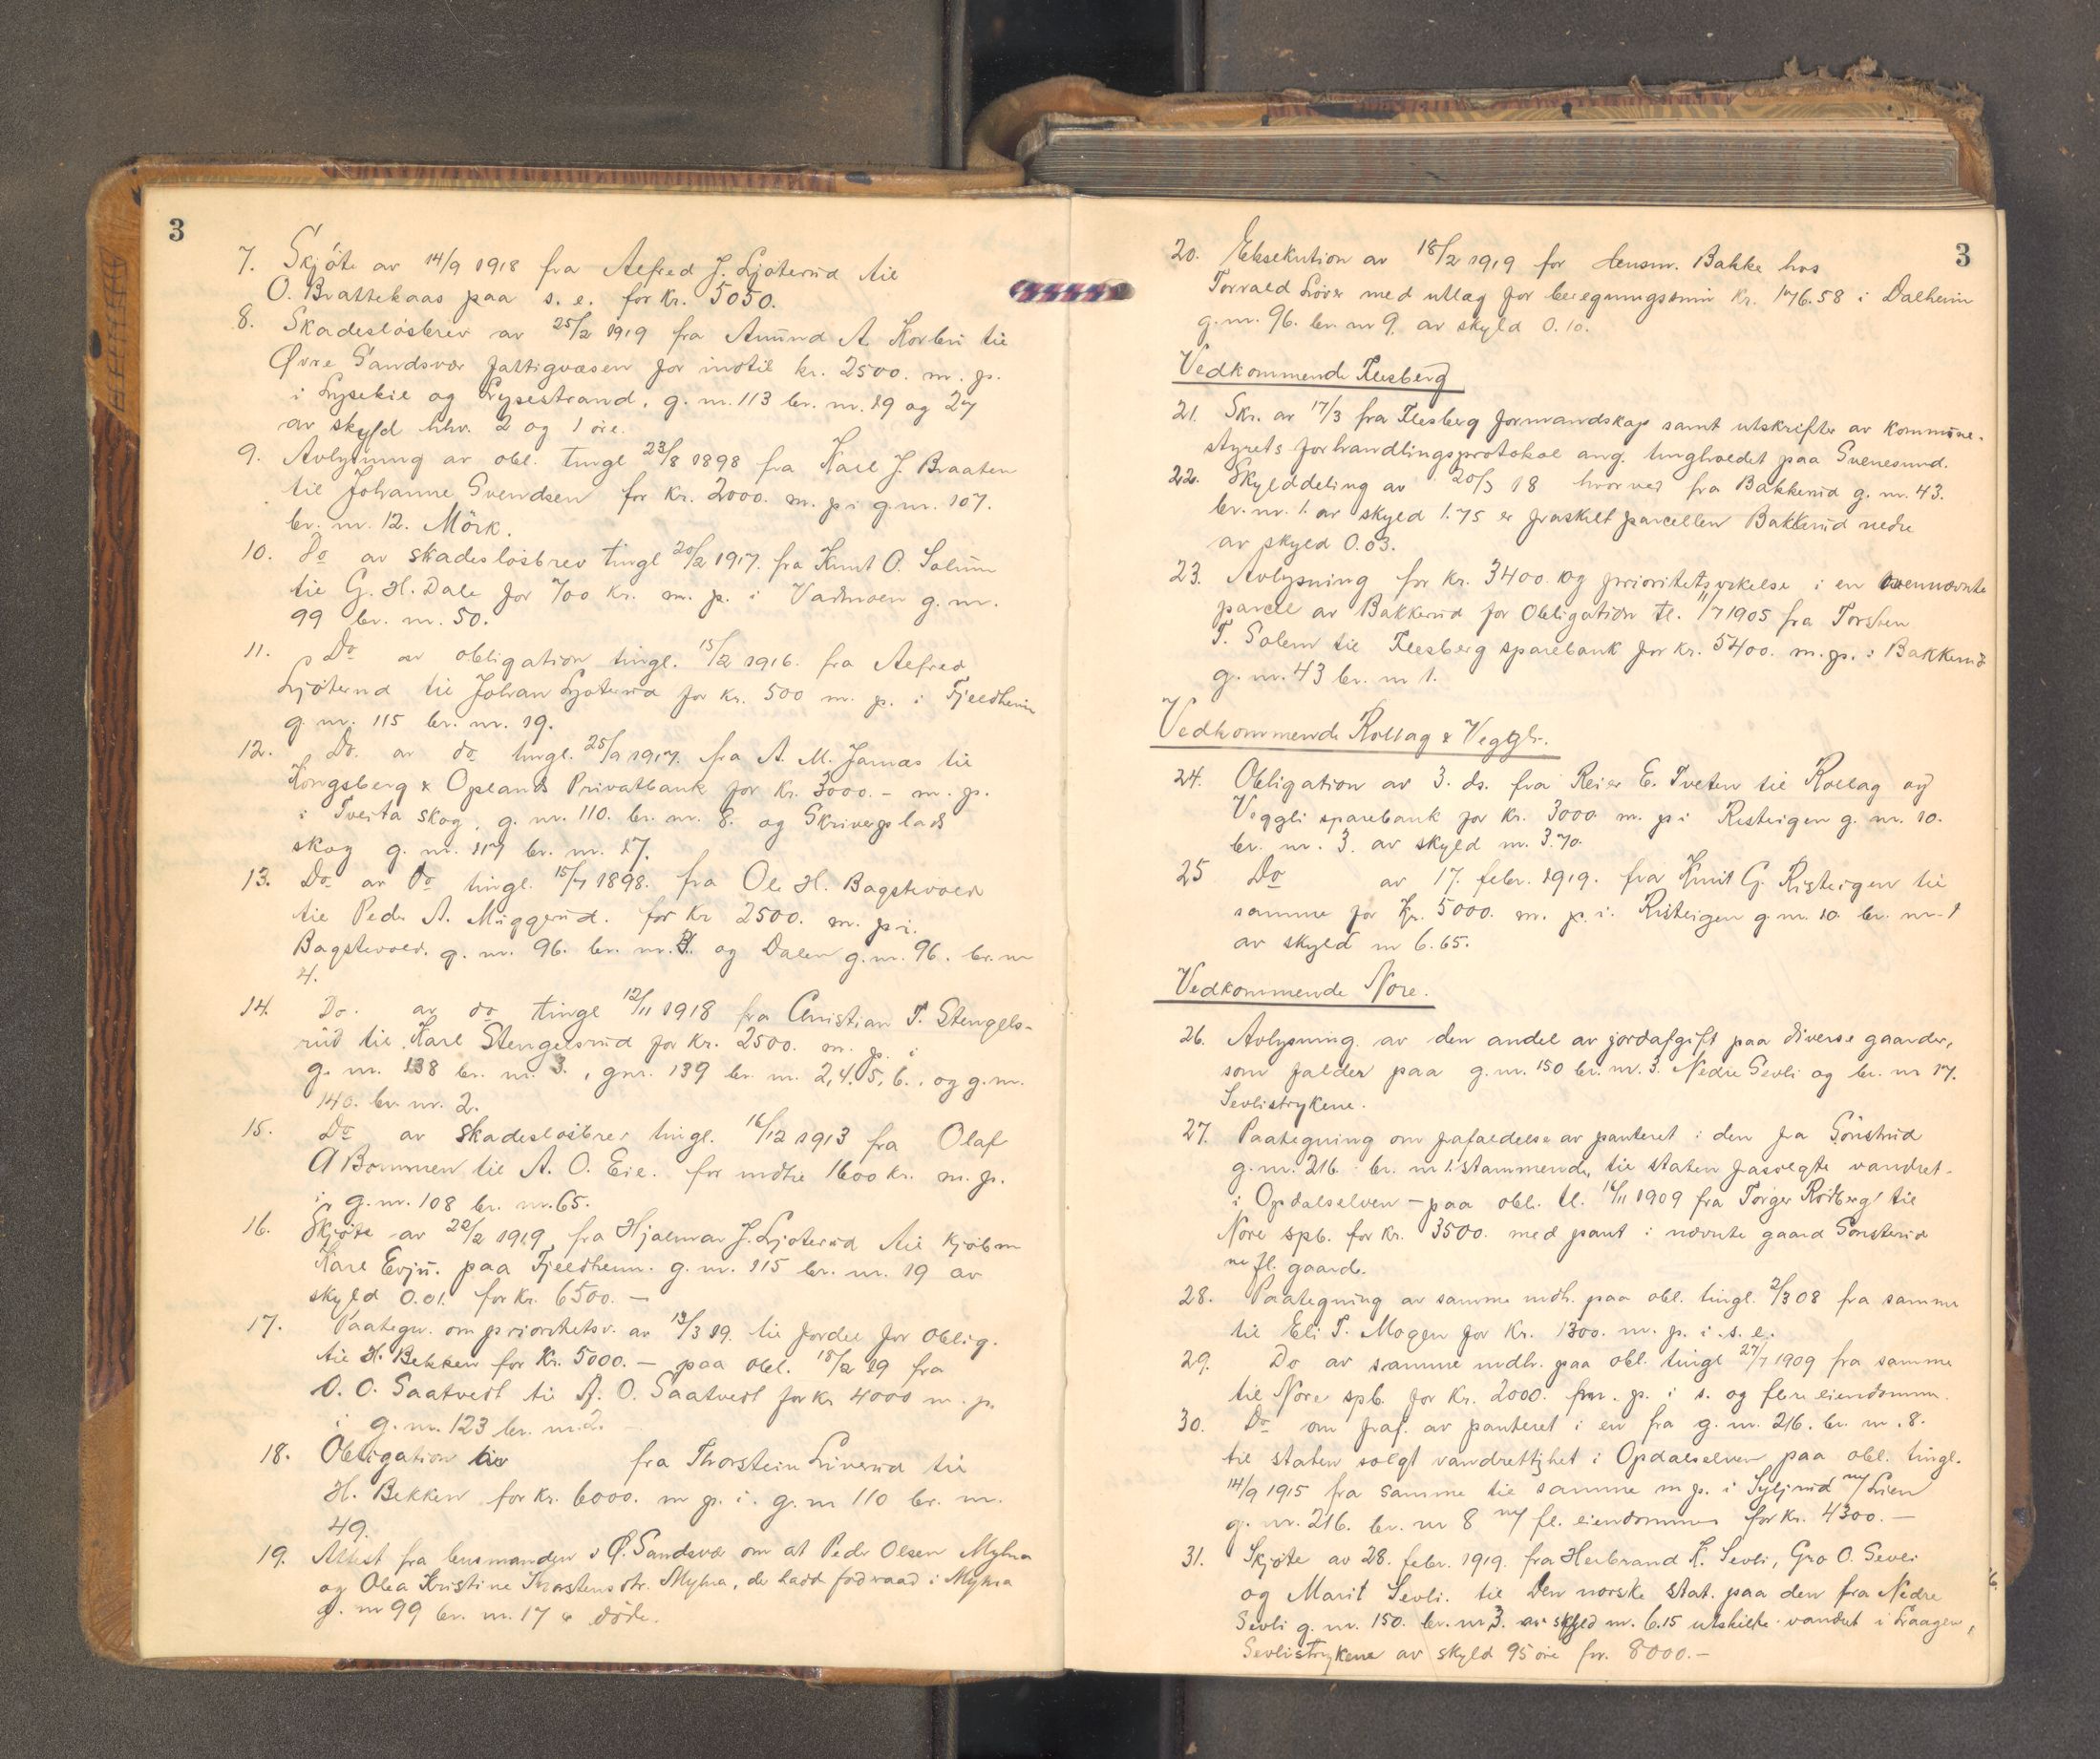 3
7. Skjöte av 14/9 1918 fra Alfred J. Ljøterud til
O. Brattekaas paa s. e. for kr. 5050.
8. Skadeslösbrev av 25/2 1919 fra Amund A. Korbri til
Øvre Sandsvær fattigvæsen for indtil kr. 2500. m. p.
i Lysekil og Lysestrand, g. nr. 113 br. nr. 19 og 27
av skyld hhv. 2 og 1 øre.
9. Avlysning av obl. tingl 23/8 1898 fra Karl J. Braaten
til Johanne Svendsen for kr. 2000. m. p. i g. nr. 107.
br. nr. 12. Mörk.
10. Do av skadeslösbrev tingl 20/2 1917. fra Knut O. Solum
til G. H. Dale for 700 kr. m. p. i Vadmoen g. nr.
99 br. nr. 50.
11. Do av obligation tingl. 15/2 1916. fra Alfred
Ljöterud til Johan Ljoterud for kr. 500 m. p. i Fjeldheim
g. nr. 115 br. nr. 19.
12. Do. av do tingl. 25/9 1917. fra A. M. Jamas til
Kongsberg & Oplands Privatbank for kr. 3000.- m. p.
i Tveita skog, g. nr. 110. br. nr. 8. og Skriverplads
skog g. nr. 117 br. nr. 17.
13. Do av do tingl. 15/7 1898. fra Ole H. Bagstevold
til Peder A. Muggerud. for kr 2500. m. p. i.
Bagstevold. g. nr. 96. br. nr. 3. og Dalen g. nr. 96. br. nr
4.
14. Do. av do tingl 12/11 1918 fra Christian T. Stengels-
rud til Karl Stengelsrud for kr. 2500. m. p. i
g. nr. 138 br. nr. 3., gnr. 139 br. nr. 2, 4. 5, 6., og g. nr.
140. br. nr. 2.
15. Do av skadeslösbrev tingl. 16/12 1913 fra Olaf
A Bommen til A. O. Eie. for indtil 1600 kr. m. p.
i g. nr. 108 br. nr. 65.
16. Skjöte av 22/2 1919 fra Hjalmar J. Ljoterud til kjöbm
Karl Evju. paa Fjeldheim. g. nr. 115 br. nr. 19 av
skyld 0.01. for kr. 6500. —
17. Paategn. om prioritetsv. av 13/3 19. til fordel for oblig.
til H. Bekken for kr. 5000. — paa obl. 18/2 19 fra
O. O. Saatvedt til A. O. Saatvedt for kr 4000 m. p.
i g. nr. 123 br. nr. 2.
18. Obligation av fra Thorstein Linerud til
H. Bekken for kr. 6000. m p. i. g. nr 110 br. nr.
49.
19. Attest fra lensmanden i Ø. Sandsvær om at Peder Olsen Myhra
og Olea Kristine Thorstensdtr. Myhra, de hadde födraad i Myhra
g. nr 99 br. nr. 17 er döde.
3
20. Eksekution av 18/2 1919 for lensm. Bakke hos
Torvald Löver med utlæg for bergningssum kr. 176.58 i Dalheim
g. nr. 96. br. nr 9. av skyld 0.10.
Vedkommende Flesberg
21. Skr. av 17/3 fra Flesberg formandskap samt utskrifter av kommune-
styrets forhandlingsprotokol ang. tingholdet paa Svenesund.
22. Skylddeling av 20/3 18 hvorved fra Bakkerud g. nr. 43.
br. nr. 1. av skyld 1.75 er fraskilt parcellen Bakkerud nedre
av skyld 0.03.
23. Avlysning for kr. 3400. og prioritetsvikelse i en ovennævnte
parcel av Bakkerud for Obligation tl. 11/7 1905 fra Torsten
T. Solem til Flesberg sparebank for kr. 5400. m. p. i Bakkerud
g. nr. 43 br. nr 1.
Vedkommende Rollag & Veggli.
24. Obligation av 3. ds. fra Reier E. Tveten til Rollag og
Veggli sparebank for kr. 3000 m. p i Risteigen g. nr. 10.
br. nr. 3. av skyld m. 3.70.
25 Do av 17. febr. 1919. fra Knut G. Risteigen til
samme for kr. 5000. m. p. i. Risteigen g. nr. 10. br. nr. 1
av skyld m 6.65.
Vedkommende Nore.
26. Avlysning av den andel av jordafgift paa diverse gaarder,
som falder paa g. nr. 150 br. nr. 3. Nedre Sevli og br. nr 17.
Sevlistrykene.
27. Paategning om frafaldelse av panteret i den fra Sönstrud
g. nr. 216. br. nr 1. stammende, til staten frasolgte vandret-
i Opdalselven — paa obl. tl. 16/11 1909 fra Torger Rödberg til
Nore spb. for kr. 3500. med pant i nævnte gaard Sönsterud
m fl. gaarde.
28. Paategning av samme indh. paa obl. tingl. 2/3 08 fra samme
til Eli T. Mogen for kr. 1300. m. p. i. s. e.
29. Do av samme indh. paa obl. tingl 27/7 1909 fra samme
til Nore spb. for kr. 2000. m. p. i s. og flere eiendomm.
30. Do om fraf. av panteret i en fra g. nr. 216. br. nr. 8.
til staten solgt vandrettighet i Opdalselven paa obl. tingl.
14/9 1915 fra samme til samme m p. i m/ Lien
g. nr. 216. br. nr 8 m/ fl. eiendommer for kr. 4300. —
31. Skjöte av 28. febr. 1919. fra Herbrand K. Sevli, Gro O. Sevli
og Marit Sevli. til Den norske stat. paa den fra Nedre
Sevli g. nr. 150. br. nr 3. av skyld m. 6.15 utskilte vandret i Laagen,
Sevlistrykene av skyld 95 øre for. 8000.—